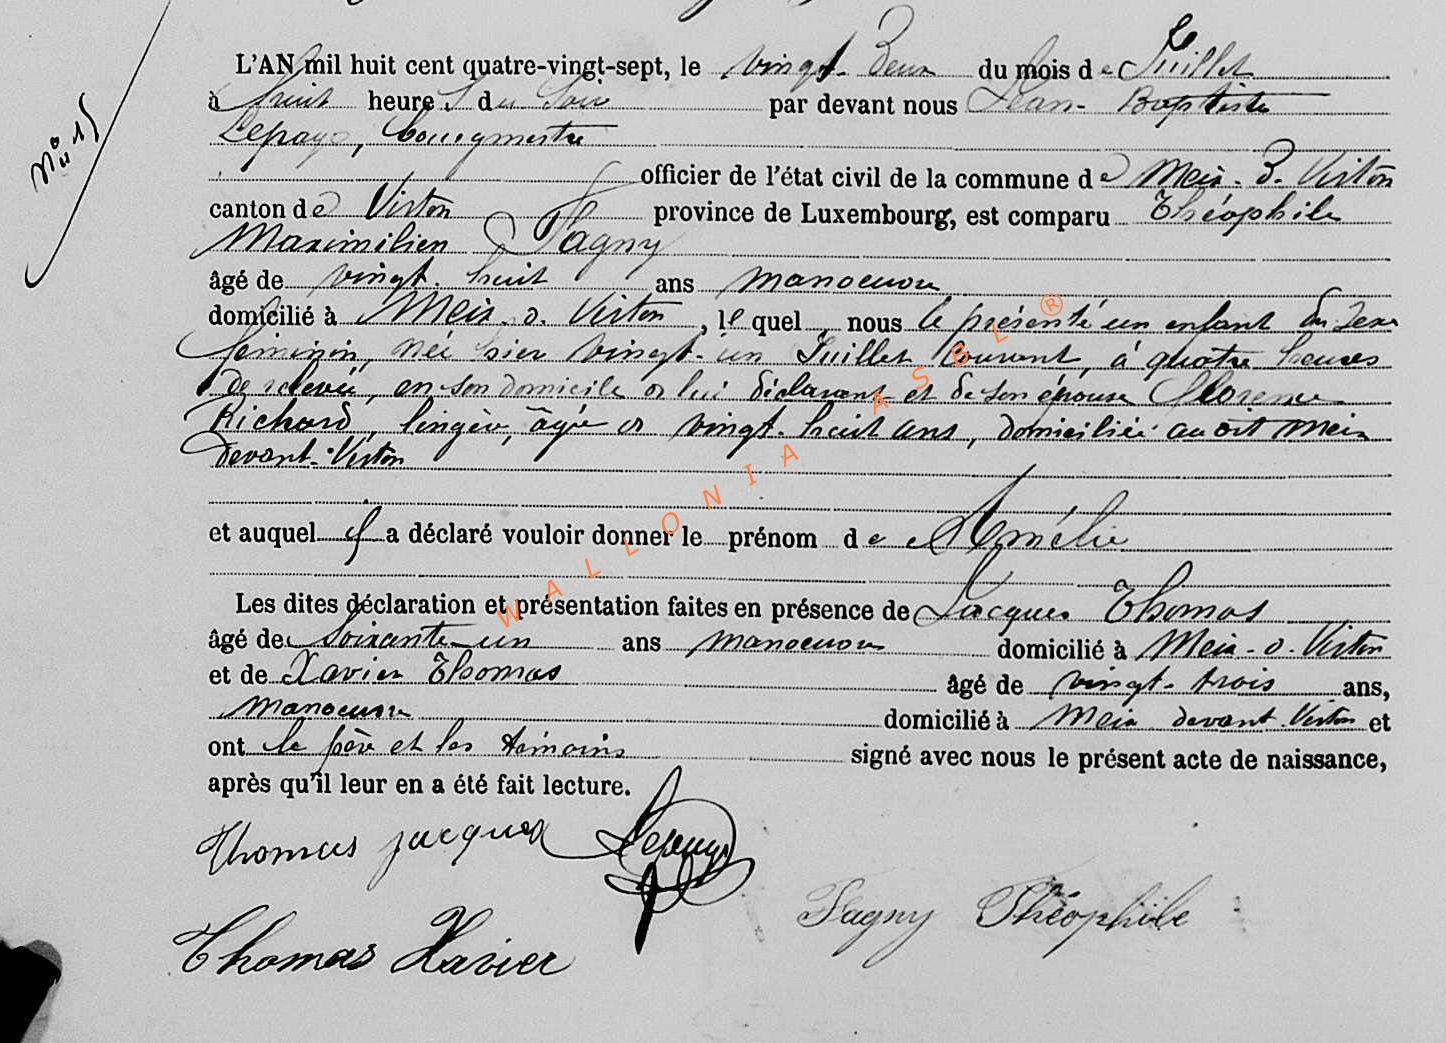 L'AN mil huit cent quatre-vingt-sept, le vingt-deux du mois de Juillet
à huit heures du soir par devant nous Jean-Baptiste
Lepage, bourgmestre
officier de l'état civil de la commune de Meix-d-Virton
canton de Virton province de Luxembourg, est comparu Théophile
Maximilien Pagny
âgé de vingt-huit ans manoeuvre
domicilié à Meix-d-Virton, lequel nous a présenté un enfant du sexe
féminin, née hier vingt-un Juillet courant, à quatre heures
de relevée, en son domicile de lui déclarant et de son épouse Florence
Richard, lingère, âgée de vingt-huit ans, domiciliée au dit Meix
devant-Virton
et auquel il a déclaré vouloir donner le prénom de Amélie
Les dites déclaration et présentation faites en présence de Jacques Thomas
âgé de soixante-un ans manoeuvre domicilié à Meix-d-Virton
et de Xavier Thomas âgé de vingt-trois ans,
manoeuvre domicilié à Meix devant Virton et
ont le père et les témoins signé avec nous le présent acte de naissance,
après qu'il leur en a été fait lecture.
Thomas jacques
Thomas Xavier
Pagny Théophile
WALLONIA ASBL ®